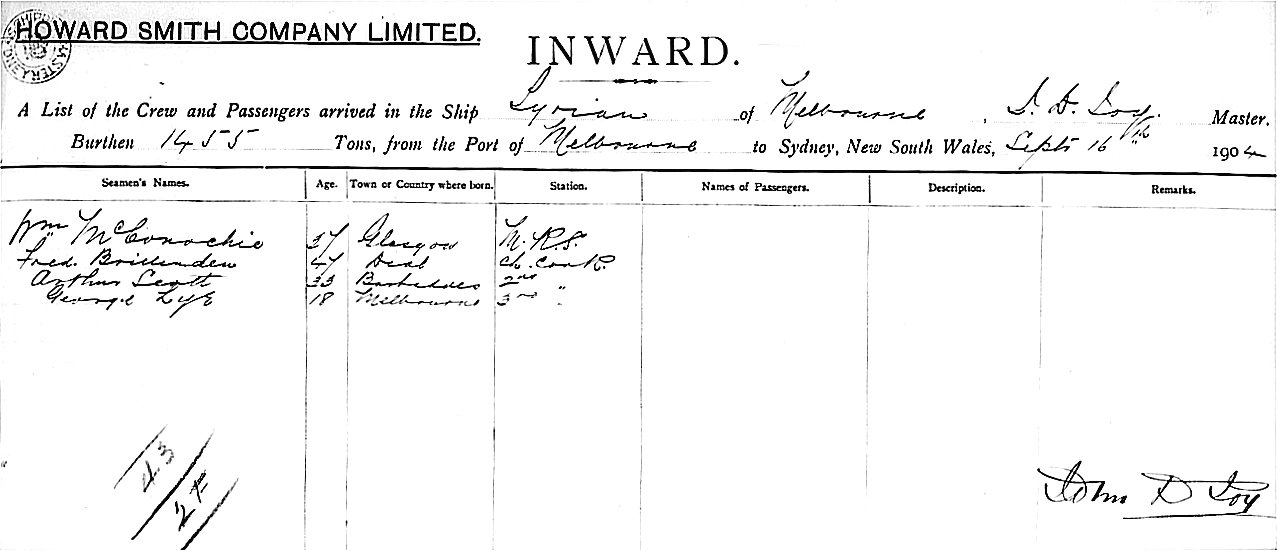 HOWARD SMITH COMPANY LIMITED.
INWARD.
A List of the Crew and Passengers arrived in the Ship Tyrian of Melbourne, J. D. Joy. Master.
Burthen 1455 Tons, from the Port of Melbourne to Sydney, New South Wales, Septr 16th 1904
Seamen's Names. Age. Town or Country where born. Station. Names of Passengers. Description. Remarks.
Wm McConochie 37 Glasgow M. R. S.
Fred. Brillenden 47 Deal Ch. Cook.
Arthur Scott 33 Barbadoes 2nd "
George Lye 18 Melbourne 3rd "
43
John D Joy